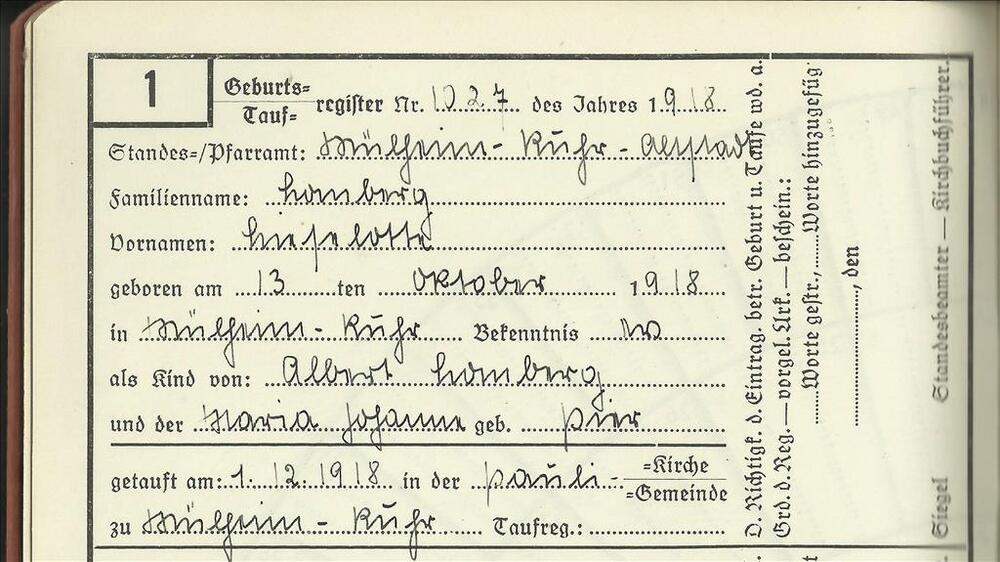 1
Geburts=
Tauf= register Nr. 1027 des Jahres 1918
Standes=/Pfarramt: Mülheim-Ruhr-Altstadt
Familienname: Homberg
Vornamen: Lieselotte
geboren am 13 ten Oktober 1918
in Mülheim-Ruhr Bekenntnis
als Kind von: Albert Homberg
und der Maria Johanne geb. Pier
getauft am: 1.12.1918 in der Pauli- =Kirche
=Gemeinde
zu Mülheim-Ruhr Taufreg.:
D. Richtigk. d. Eintrag. betr. Geburt u. Taufe wd. a.
Grd. d. Reg. — vorgel. Urk. — beschein.:
Worte gestr., Worte hinzugefüg
, den
Siegel Standesbeamter — Kirchbuchführer.